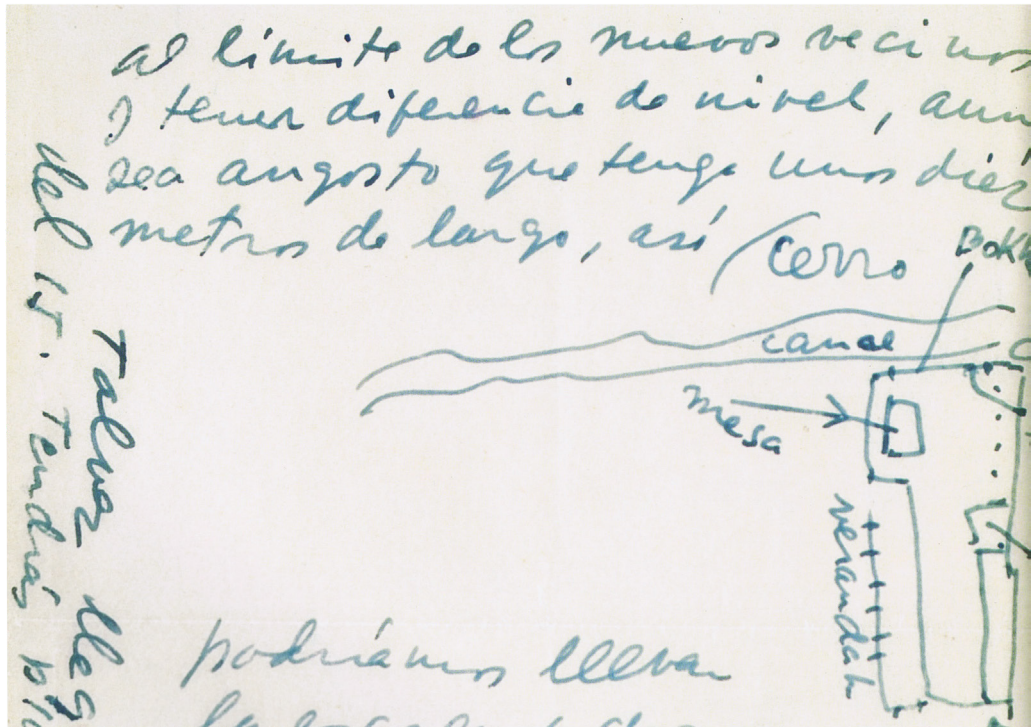 al límite de los nuevos vecinos
y tener diferencia de nivel, aun
sea angosto que tenga unos diez
metros de largo, así
cerro
canal
mesa
verandah
podríamos llevar
Talvez lleg
del 15. Tendrás